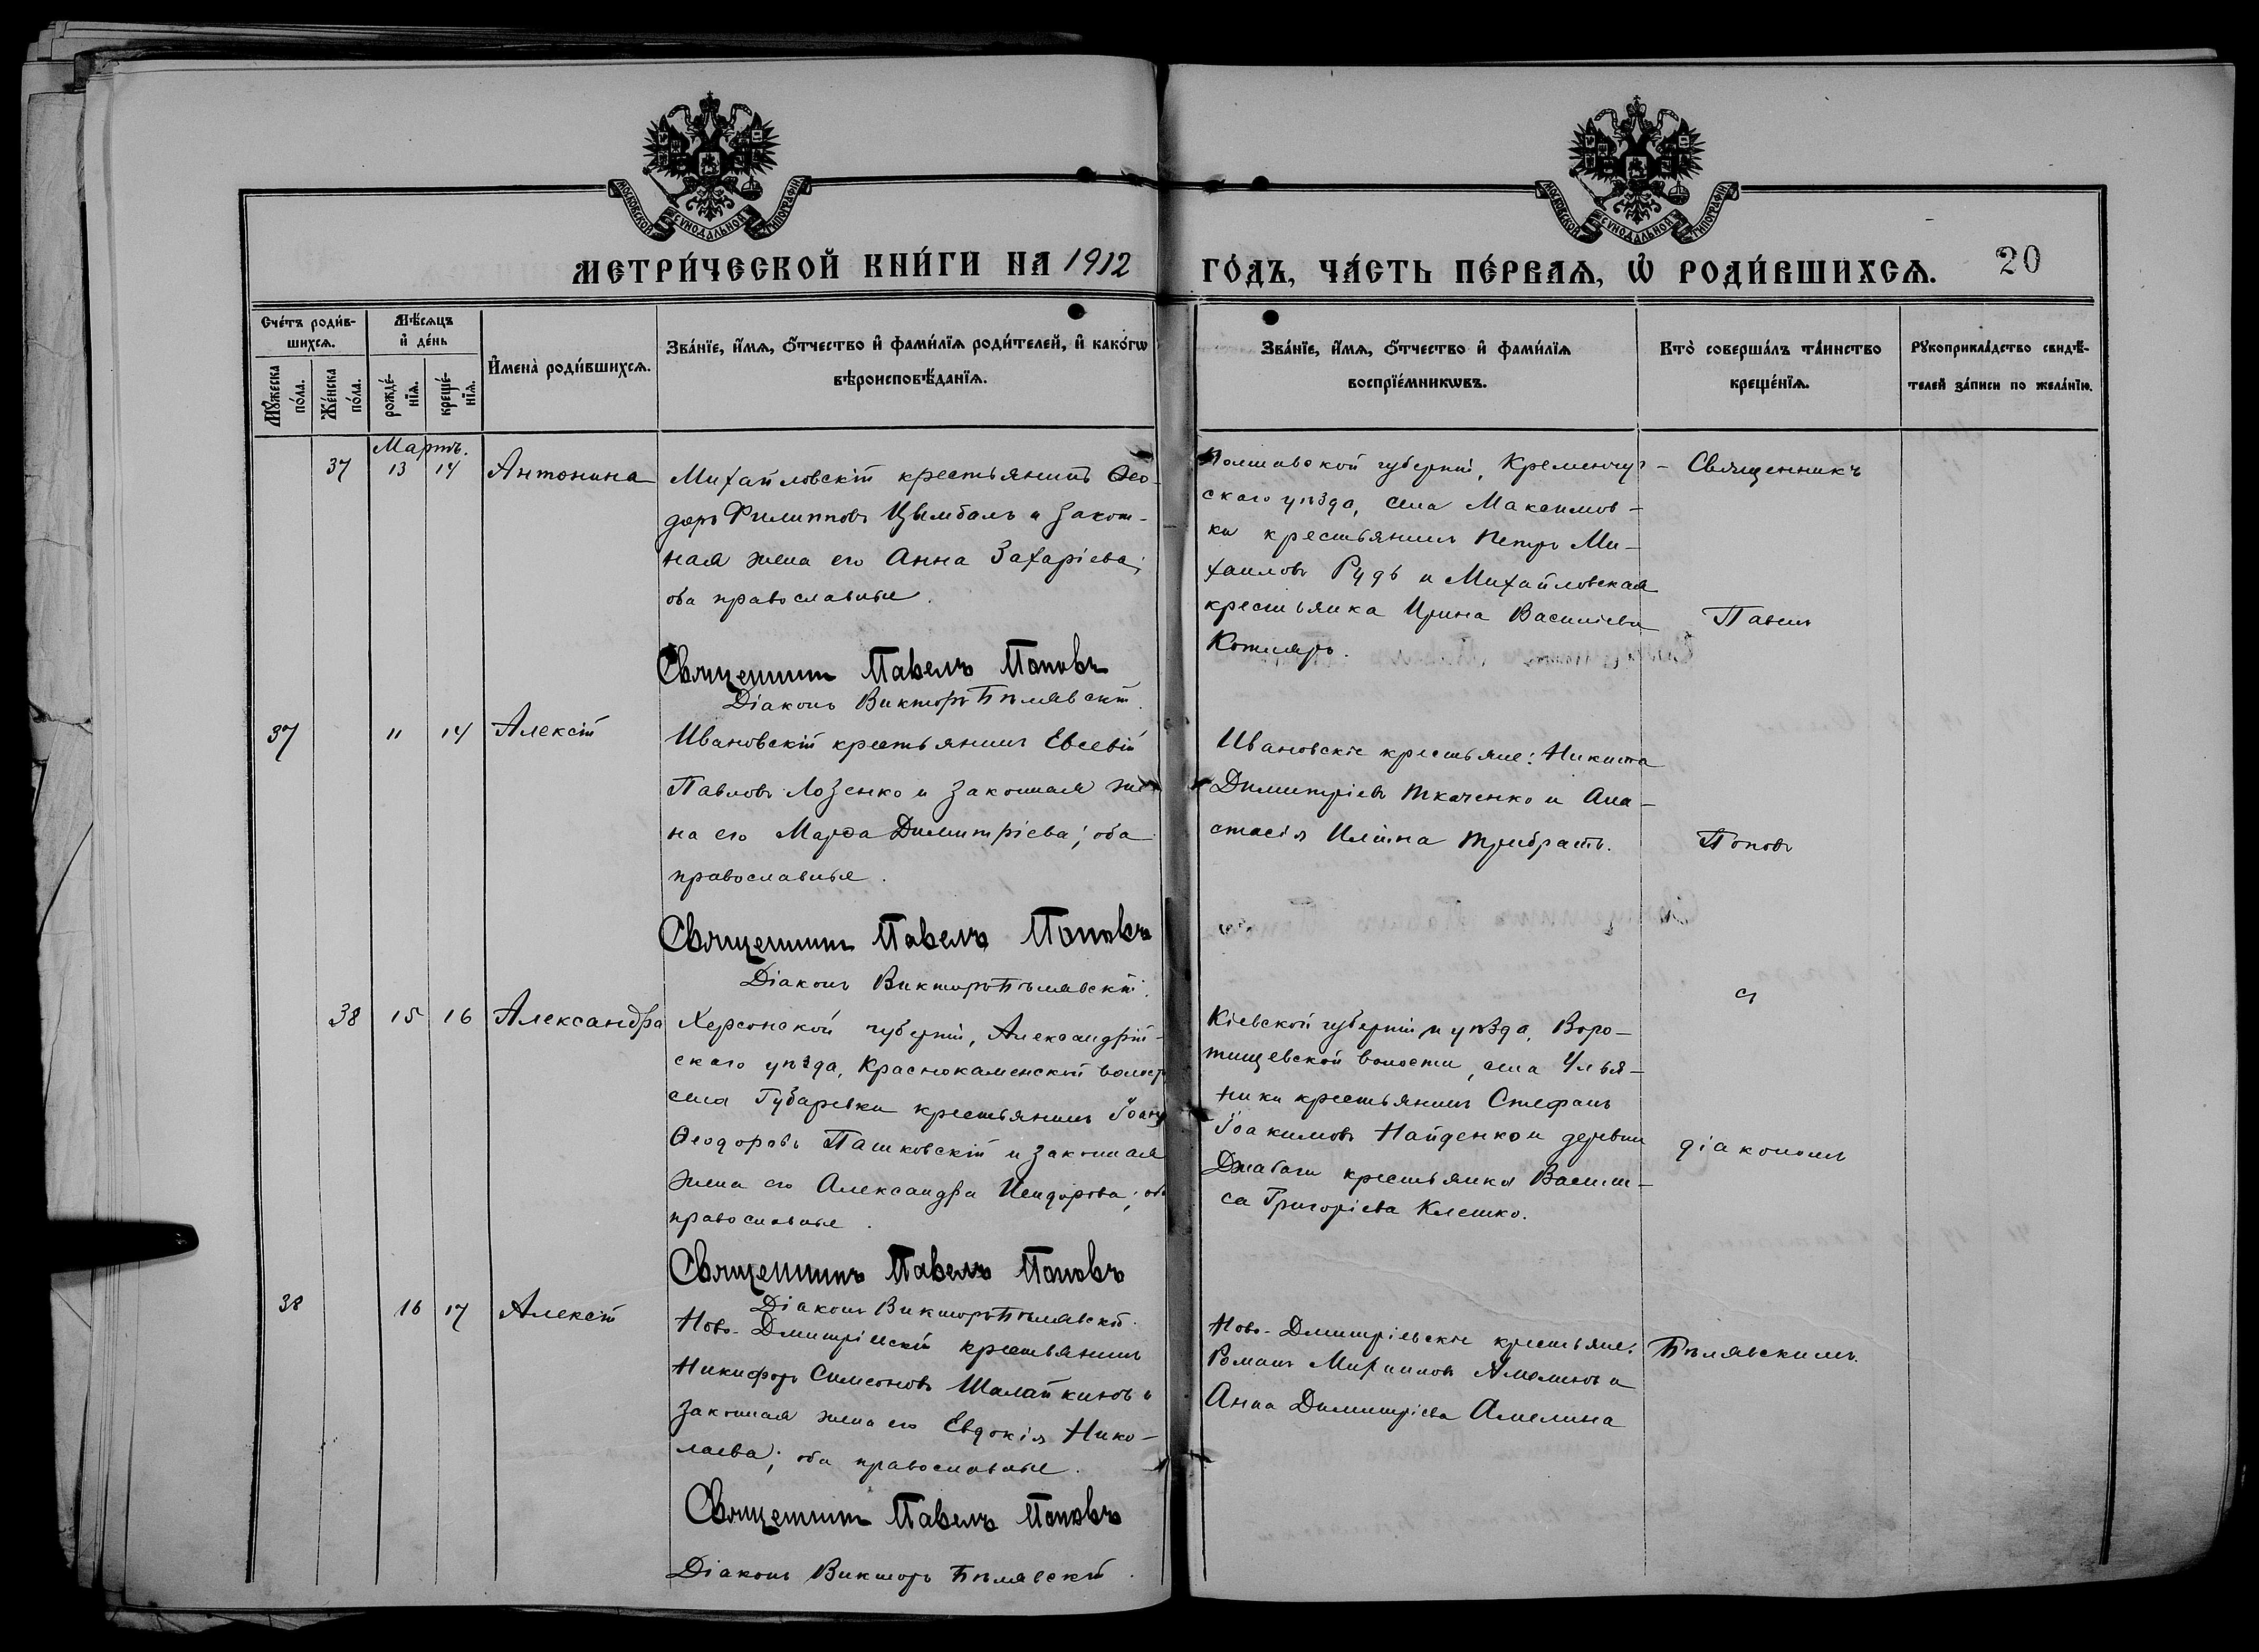 МОСКОВСКОЙ СУНОДАЛЬНОЙ ТИПОГРАФІИ
МОСКОВСКОЙ СУНОДАЛЬНОЙ ТИПОГРАФІИ
МЕТРИ́ЧЕСКОЙ КНИ́ГИ НА 1912
ГО́ДЪ, ЧА́СТЬ ПЕ́РВАѦ, Ѡ҆ РОДИ́ВШИХСѦ.
20
Сче́тъ роди́в-
шихсѧ.
Мѣ́сѧцъ
и҆ де́нь
Мꙋ́жеска
по́ла.
Же́нска
по́ла.
рожде́-
нїѧ.
креще́-
нїѧ.
И҆мена̀ роди́вшихсѧ.
Зва́нїе, и҆́мѧ, ѻ҆́тчество и҆ фами́лїѧ роди́телей, и҆ како́гѡ
вѣроисповѣ́данїѧ.
Зва́нїе, и҆́мѧ, ѻ҆́тчество и҆ фами́лїѧ
воспрїе́мникѡвъ.
Кто̀ соверша́лъ та́инство
креще́нїѧ.
Рꙋкоприкла́дство свидѣ́-
телей за́писи по жела́нїю.
Мартъ.
37 13 14 Антонина
Михайловскій крестьянинъ Ѳео-
доръ Филипповъ Цымбалъ и закон-
ная жена его Анна Захаріева;
оба православные.
Священникъ Павелъ Поповъ
Діаконъ Викторъ Бѣлявскій.
Полтавской губерніи, Кременчуг-
скаго уѣзда, села Максимов-
ки крестьянинъ Петръ Ми-
хаиловъ Рудь и Михайловская
крестьянка Ирина Василіева
Котляръ.
Священникъ
Павелъ
37 11 14 Алексій
Ивановскій крестьянинъ Евсевій
Павловъ Лозенко и законная же-
на его Марѳа Димитріева; оба
православные.
Священникъ Павелъ Поповъ
Діаконъ Викторъ Бѣлявскій.
Ивановскіе крестьяне: Никита
Димитріевъ Ткаченко и Ана-
стасія Иліина Трибратъ.
Поповъ
съ
38 15 16 Александра
Херсонской губерніи, Александрій-
скаго уѣзда, Краснокаменской волост
села Губаревки крестьянинъ Іоаннъ
Ѳеодоровъ Пашковскій и законная
жена его Александра Исидорова; оба
православные.
Священникъ Павелъ Поповъ
Діаконъ Викторъ Бѣлявскій.
Кіевской губерніи и уѣзда, Воро-
тищевской волости, села Улья-
ники крестьянинъ Стефанъ
Іоакимовъ Найденко и деревни
крестьянка Васили-
са Григоріева Клешко.
діакономъ
38 16 17 Алексій
Ново-Дмитріевскій крестьянинъ
Никифоръ Симеоновъ Шалайкинъ и
законная жена его Евдокія Нико-
лаева; оба православные.
Священникъ Павелъ Поповъ
Діаконъ Викторъ Бѣлявскій.
Ново-Дмитріевскіе крестьяне:
Романъ Михаиловъ Амелинъ и
Анна Димитріева Амелина
Бѣлявскимъ.